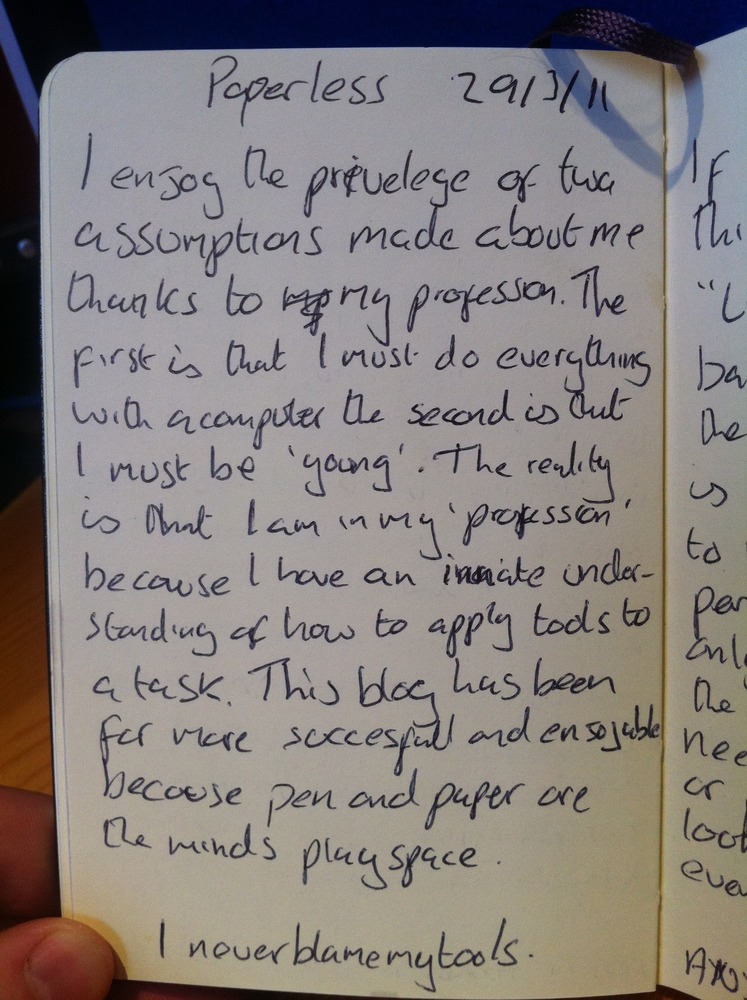 Paperless 29/3/11
I enjoy the privelege of two
assumptions made about me
thanks to my profession. The
first is that I must do everything
with a computer the second is that
I must be 'young'. The reality
is that I am in my 'profession'
because I have an innate under-
standing of how to apply tools to
a task. This blog has been
far more succesful and enjoyable
because pen and paper are
the minds playspace.
I never blame my tools.
If
thi
"L
ba
the
is
to
per
only
the
nee
or
loo
eve